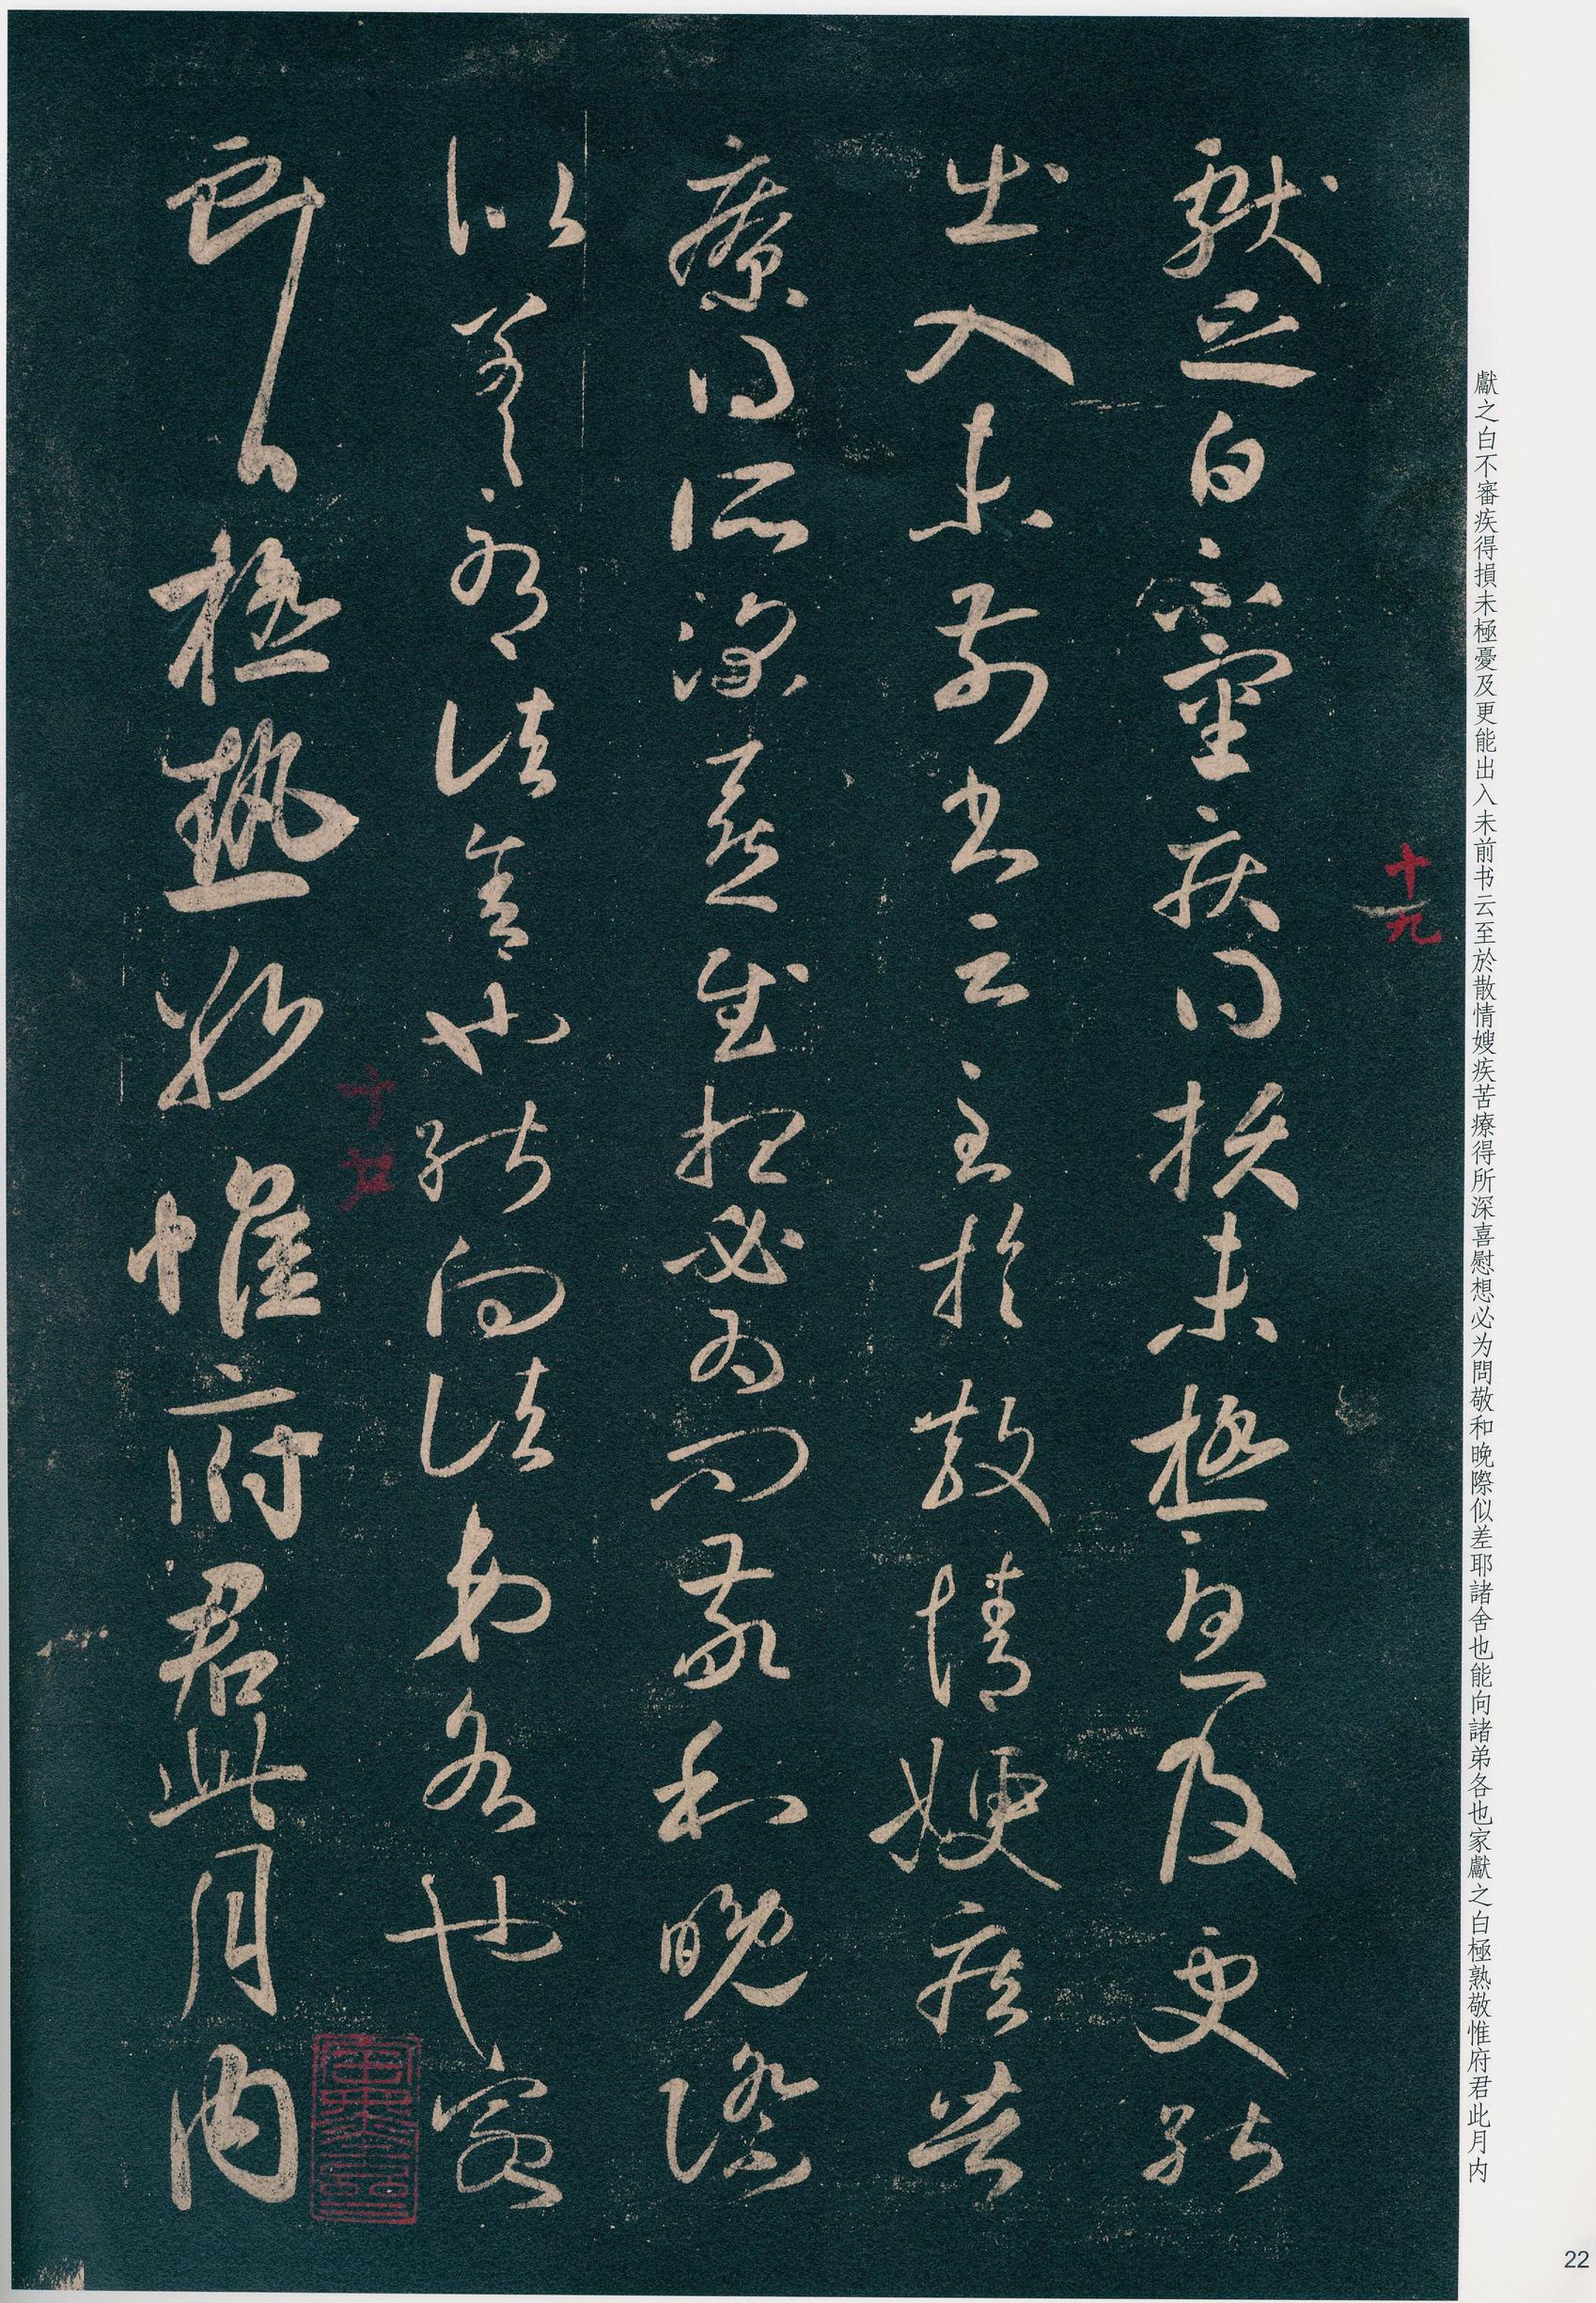 獻之白不審疾得損未極憂及更能
出入未前書云至於散情嫂疾苦
療得所深喜慰想必為問敬和晚際
似差耶諸舍也能向諸弟各也
獻之白極熱敬惟府君此月内
十九
獻之白不審疾得損未極憂及更能出入未前书云至於散情嫂疾苦療得所深喜慰想必为問敬和晚際似差耶諸舍也能向諸弟各也家獻之白極熟敬惟府君此月内
22